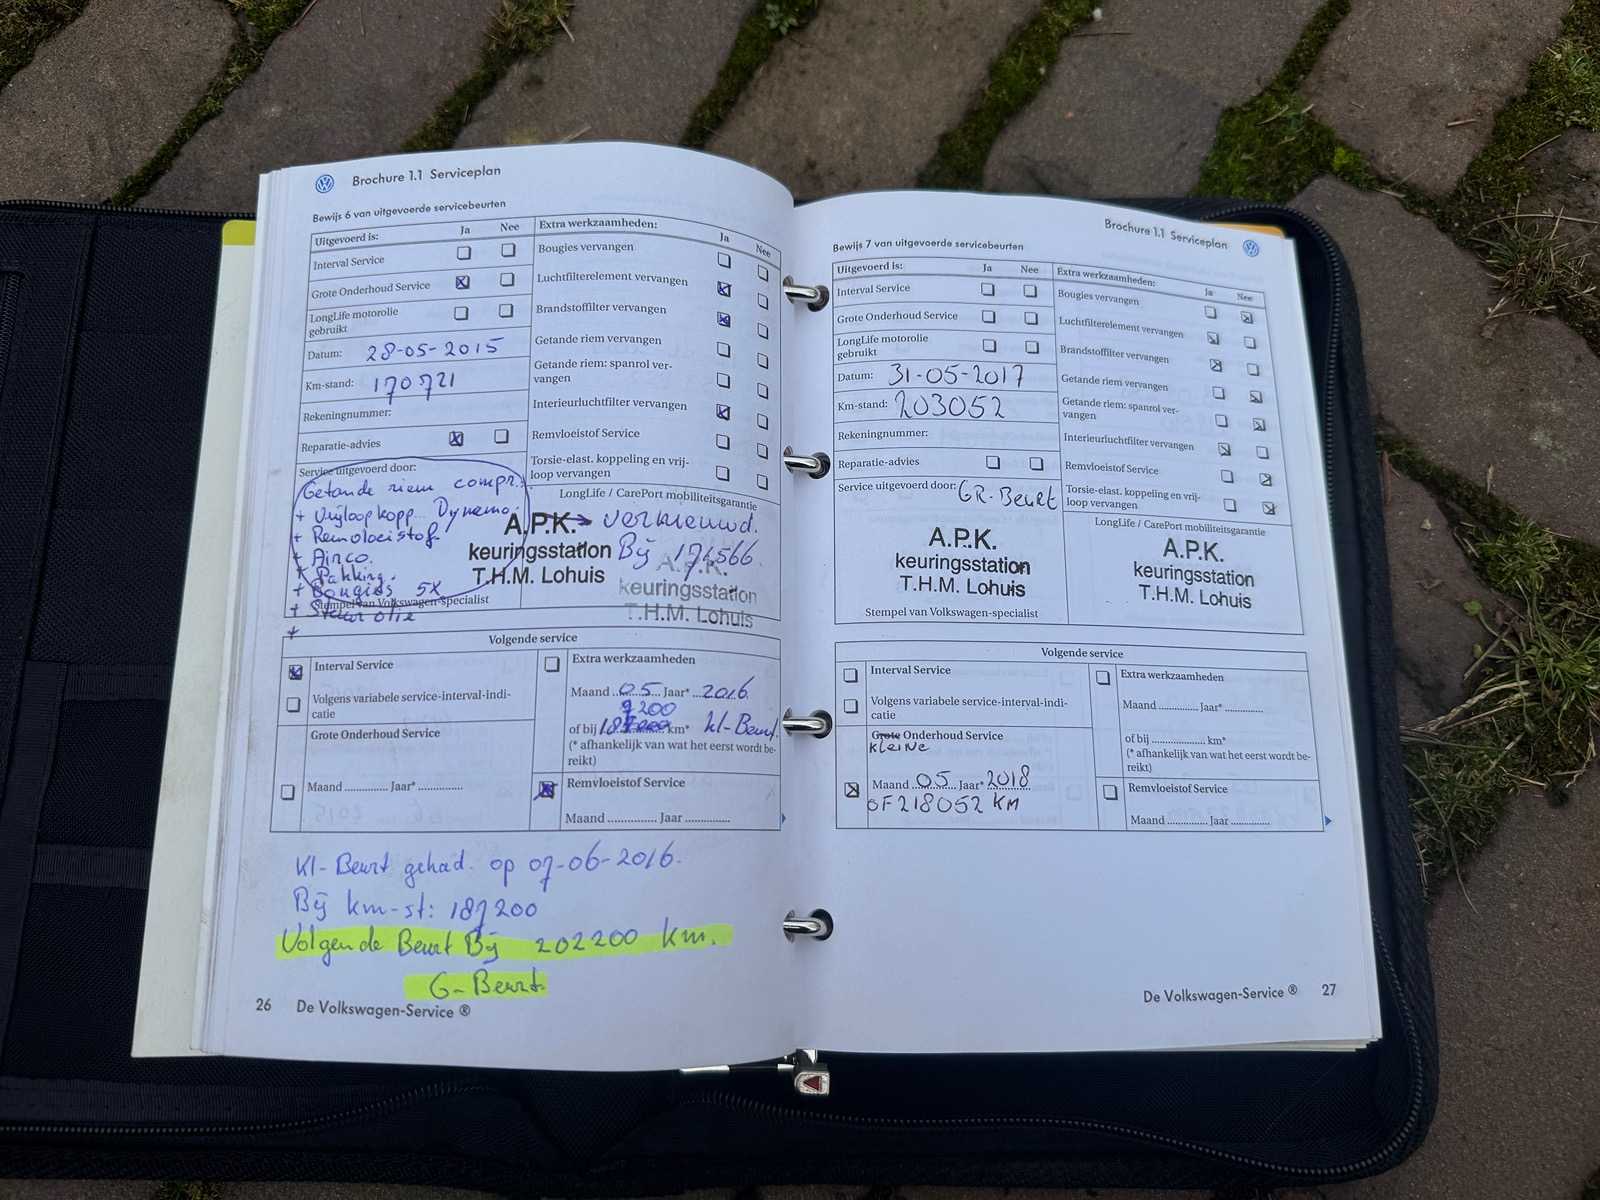 Brochure 1.1 Serviceplan
Bewijs 6 van uitgevoerde servicebeurten
Uitgevoerd is: Ja Nee
Interval Service
Grote Onderhoud Service
LongLife motorolie
gebruikt
Datum: 28-05-2015
Km-stand: 170721
Rekeningnummer:
Reparatie-advies
Service uitgevoerd door:
Getande riem compr.
+ Vrijloopkopp. Dynamo.
+ Remvloeistof.
+ Airco.
+ Pakking.
+ Bougies 5x
Stempel van Volkswagen-specialist
+ Stuur olie
+
A.P.K.
keuringsstation
T.H.M. Lohuis
Extra werkzaamheden: Ja Nee
Bougies vervangen
Luchtfilterelement vervangen
Brandstoffilter vervangen
Getande riem vervangen
Getande riem: spanrol ver-
vangen
Interieurluchtfilter vervangen
Remvloeistof Service
Torsie-elast. koppeling en vrij-
loop vervangen
LongLife / CarePort mobiliteitsgarantie
vernieuwd.
Bij 176566
A.P.K.
keuringsstation
T.H.M. Lohuis
Volgende service
Interval Service
Volgens variabele service-interval-indi-
catie
Grote Onderhoud Service
Maand ............. Jaar* .............
Extra werkzaamheden
Maand ..05... Jaar* ..2016.
7200
of bij 18 km* kl-Beurt.
(* afhankelijk van wat het eerst wordt be-
reikt)
Remvloeistof Service
Maand ............. Jaar .............
Kl-Beurt gehad. op 07-06-2016.
Bij km-st: 187200
Volgende Beurt Bij 202200 km.
G-Beurt.
26 De Volkswagen-Service ®
Brochure 1.1 Serviceplan
Bewijs 7 van uitgevoerde servicebeurten
Uitgevoerd is: Ja Nee
Interval Service
Grote Onderhoud Service
LongLife motorolie
gebruikt
Datum: 31-05-2017
Km-stand: 203052
Rekeningnummer:
Reparatie-advies
Service uitgevoerd door: GR-Beurt
A.P.K.
keuringsstation
T.H.M. Lohuis
Stempel van Volkswagen-specialist
Extra werkzaamheden: Ja Nee
Bougies vervangen
Luchtfilterelement vervangen
Brandstoffilter vervangen
Getande riem vervangen
Getande riem: spanrol ver-
vangen
Interieurluchtfilter vervangen
Remvloeistof Service
Torsie-elast. koppeling en vrij-
loop vervangen
LongLife / CarePort mobiliteitsgarantie
A.P.K.
keuringsstation
T.H.M. Lohuis
Volgende service
Interval Service
Volgens variabele service-interval-indi-
catie
Grote Onderhoud Service
kleine
Maand 05 Jaar* 2018
OF 218052 KM
Extra werkzaamheden
Maand ............. Jaar* .............
of bij ................... km*
(* afhankelijk van wat het eerst wordt be-
reikt)
Remvloeistof Service
Maand ............. Jaar .............
De Volkswagen-Service ® 27